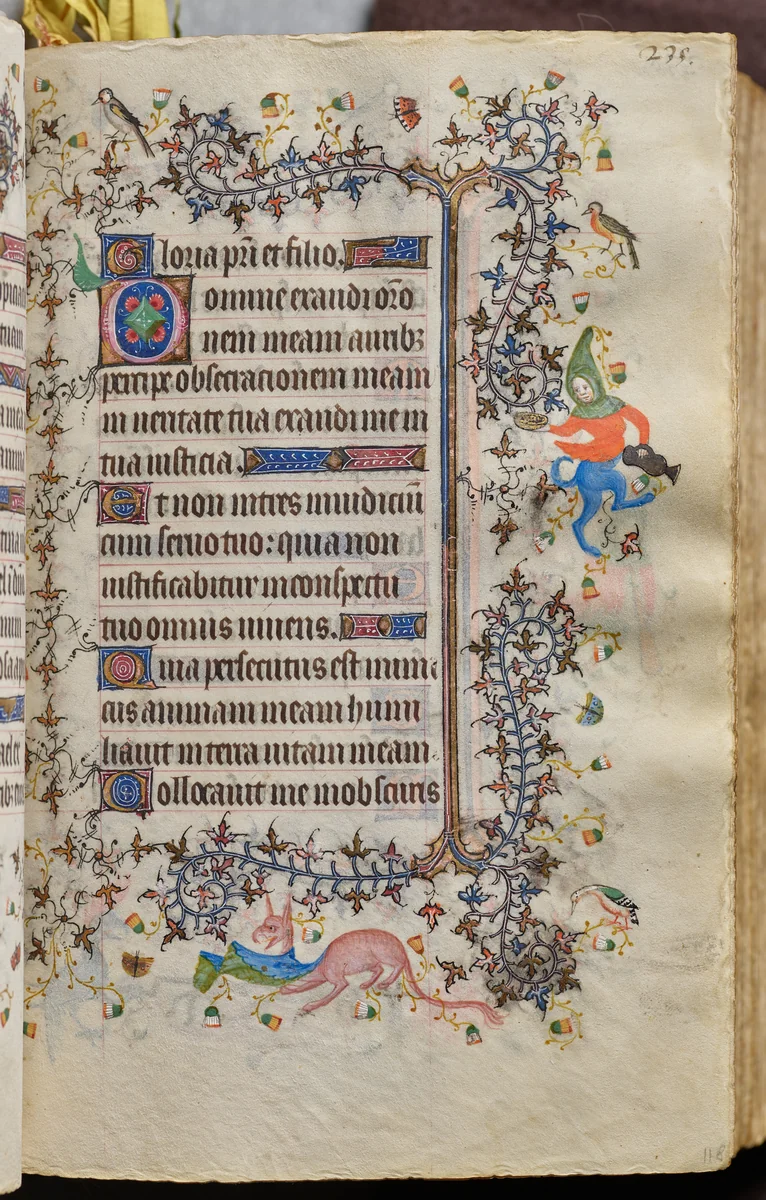 275.
Gloria pr̄i et filio.
Domine exaudi or̄o
nem meam auribꝫ
percipe obsecrationem meam
in ueritate tua exaudi me in
tua iusticia.
Et non intres in iudiciū
cum seruo tuo: quia non
iustificabitur in conspectu
tuo omnis uiuens.
Quia persecutus est inimi
cus animam meam humi
liauit in terra uitam meam.
Collocauit me in obscuris
118